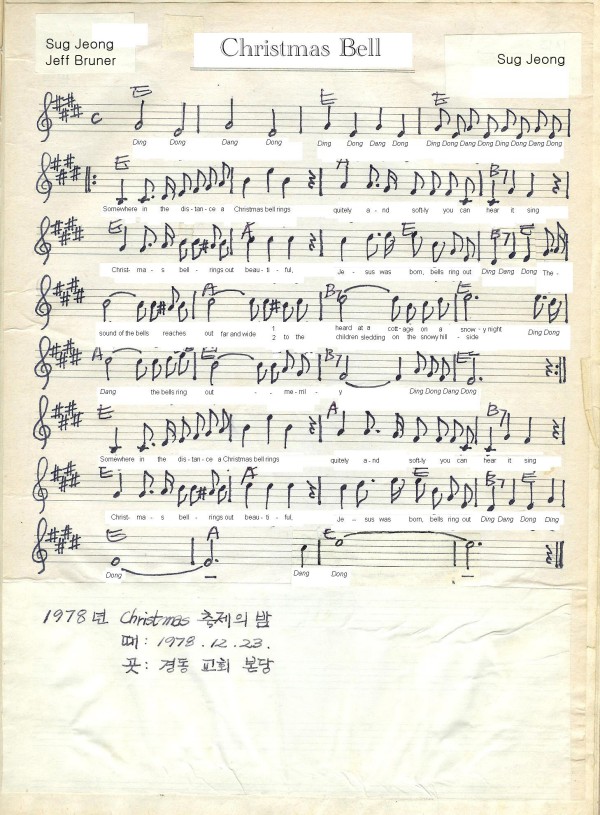 Sug Jeong
Jeff Bruner
Christmas Bell
Sug Jeong
E E E
c
Ding Dong Dang Dong Ding Dong Dang Dong Ding Dong Dang Dong Ding Dang Dang Dong
E B7
Somewhere in the dis-tan-ce a Christmas bell rings quitely a-nd soft-ly you can hear it sing
E A E B7 E
Christ-mas-s bell-rings out beau-ti-ful, Je-sus was born, bells ring out Ding Dang Dong The-
A B7 E
sound of the bells reaches out far and wide 1 heard at a cott-age on a snow-y night
2 to the children sledding on the snowy hill-side Ding Dong
A E B7 E
Dang the bells ring out - - me-mi-y Ding Dong Dang Dong
E A B7
Somewhere in the dis-tan-ce a Christmas bell rings quitely a-nd soft-ly you can hear it sing
E A E B7 E
Christ-ma-s bell-rings out beau-ti-ful, Je-sus was born, bells ring out Ding Dang Dong
E A E
Dong Dang Dong
1978년 Christmas 축제의 밤
때: 1978.12.23.
곳: 경동 교회 본당